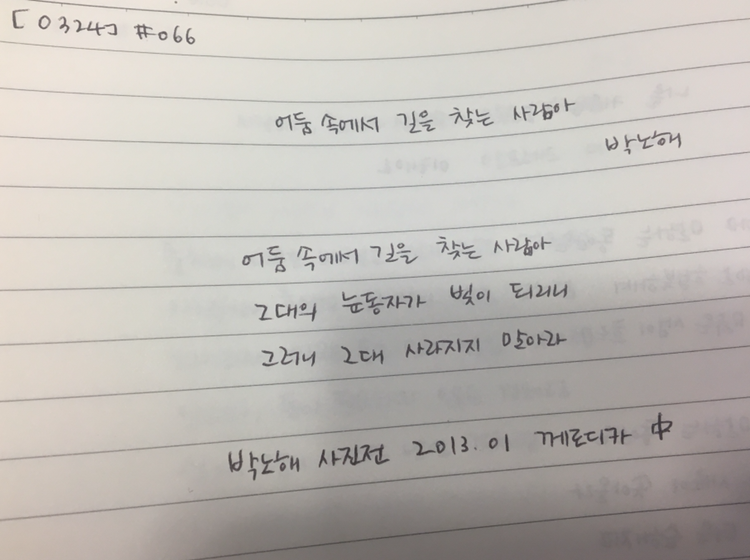 [0324] #066
어둠 속에서 길을 찾는 사람아
박노해
어둠 속에서 길을 찾는 사람아
그대의 눈동자가 빛이 되리니
그러니 그대 사라지지 말아라
박노해 사진전 2013.01 께로디카 中